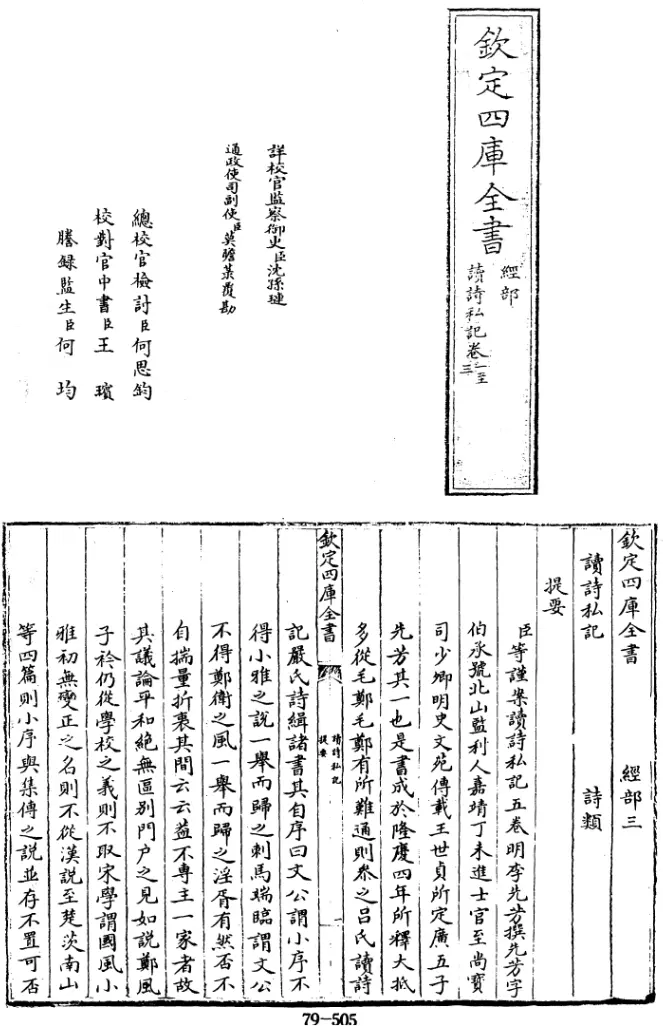 欽定四庫全書
經部
讀詩私記卷一至三
詳校官監察御史臣沈孫璉
通政使司副使臣莫瞻菉覆勘
總校官檢討臣何思鈞
校對官中書臣王瓚
謄錄監生臣何均
欽定四庫全書 經部三
讀詩私記 詩類
提要
臣等謹案讀詩私記五卷明李先芳撰先芳字
伯承號北山監利人嘉靖丁未進士官至尚寶
司少卿明史文苑傳載王世貞所定廣五子
先芳其一也是書成於隆慶四年所釋大抵
多從毛鄭毛鄭有所難通則叅之呂氏讀詩
欽定四庫全書
讀詩私記
提要
一
記嚴氏詩緝諸書其自序曰文公謂小序不
得小雅之說一舉而歸之刺馬端臨謂文公
不得鄭衛之風一舉而歸之淫胥有然否不
自揣量折衷其間云云葢不專主一家者故
其議論平和絕無區別門户之見如說鄭風
子衿仍從學校之義則不取宋學謂國風小
雅初無變正之名則不從漢說至楚茨南山
等四篇則小序與集傳之說並存不置可否
79-505